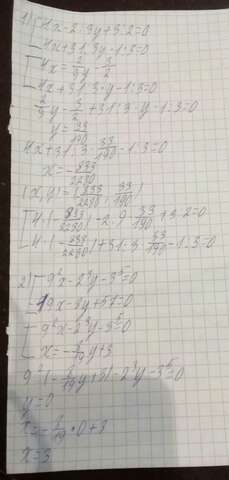 1) { 4x - 2:3y + 3:2 = 0
4x + 31:3y - 1:3 = 0
{ 4x = 2/3 y - 3/2
4x + 31:3·y - 1:3 = 0
2/3 y - 3/2 + 31:3·y - 1:3 = 0
y = 33/190
4x + 31:3·33/190 - 1:3 = 0
x = - 833/2280
(x, y) = (- 833/2280 ; 33/190)
{ 4·(- 833/2280) - 2: ·33/190 + 3:2 = 0
4·(- 833/2280) + 31:3·33/190 - 1:3 = 0
2) { 9²x - 2³y - 3⁵ = 0
19x - 3y + 57 = 0
{ 9²x - 2³y - 3⁵ = 0
x = - /19 y + 3
9²(- /19 y + 3) = 2³y - 3⁵ = 0
y = 0
x = - /19 · 0 + 3
x = 3